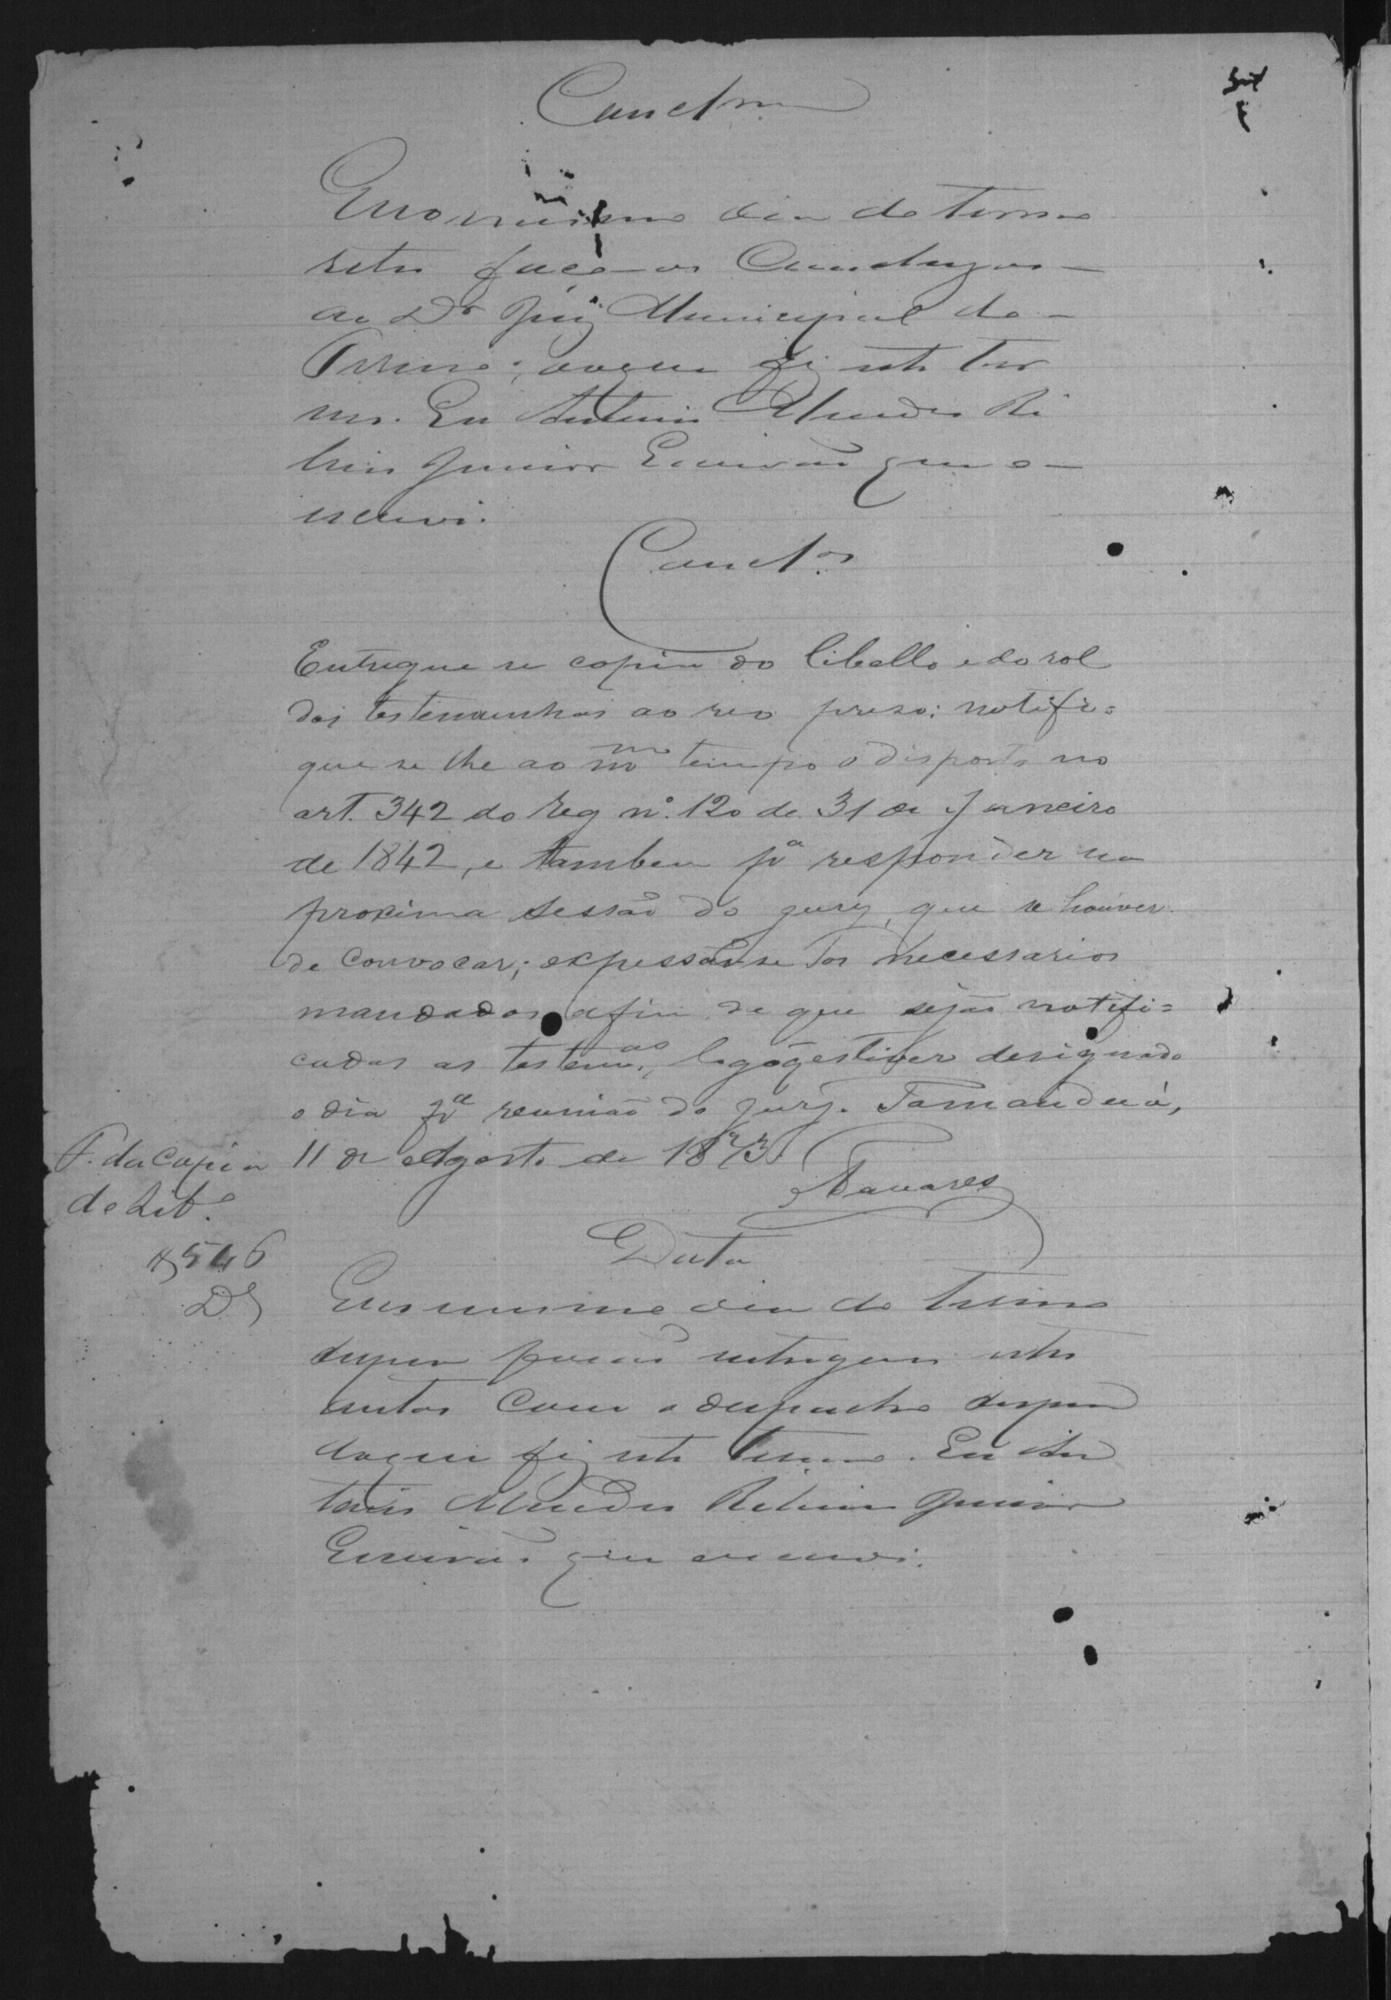 Concl.m
Eno mesmo dia do termo
retro faço-os Conclusos
ao Dr Juiz Municipal do
Termo; doque fiz este ter
mo. Eu Antonio Mendes Ri
beiro Junior Escrivão que o
escrevi.
Concl.os
Entregue se copia do libello e do rol
das testemunhas ao reo preso; notifi=
que se lhe ao mmo tempo o disposto no
art. 342 do Reg nº. 120 de 31 de Janeiro
de 1842, e tambem pa responder na
proxima sessão do jury, que se houver
de convocar; expessão-se os necessarios
mandados afim de que sejão notifi=
cadas as testem.as, logo q estiver designado
o dia pa reunião do jury. Tamanduá,
11 de Agosto de 1873.
Tavares
P. da Copia
do Lib.o
$546
Data
Eno mesmo dia do termo
supra forão entregues estes
autos com o despacho supra
doque fiz este termo. Eu An
tonio Mendes Ribeiro Junior
Escrivão que escrevi.